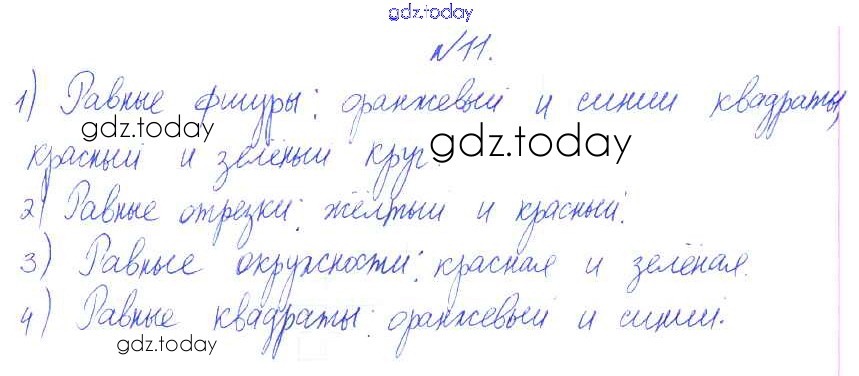 gdz.today
№11.
1) Равные фигуры: оранжевый и синий квадраты,
gdz.today
gdz.today
красный и зелёный круг.
2) Равные отрезки: жёлтый и красный.
3) Равные окружности: красная и зелёная.
4) Равные квадраты: оранжевый и синий.
gdz.today